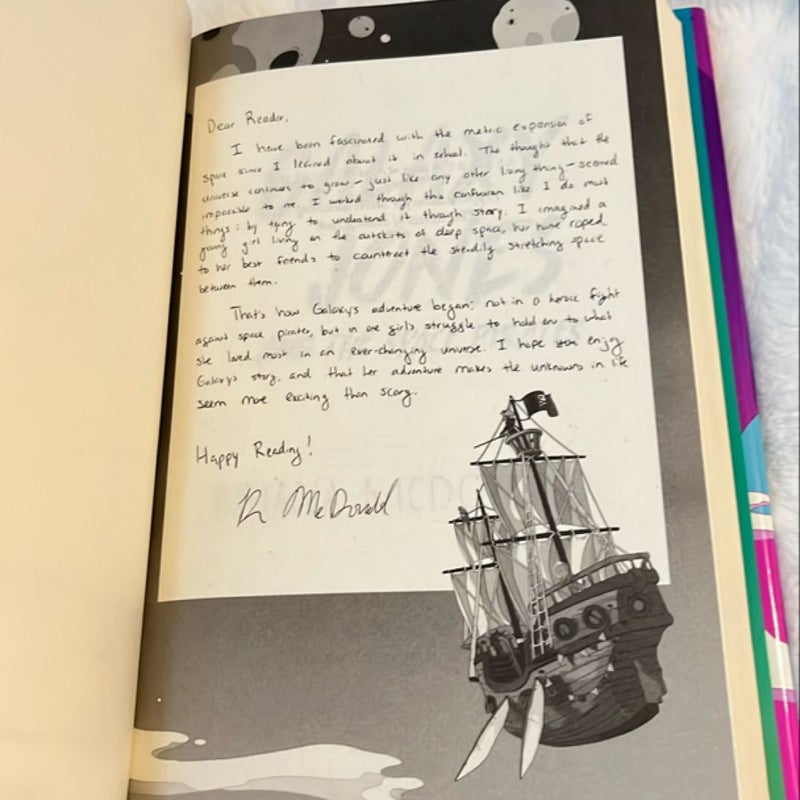 Dear Reader,
I have been fascinated with the metric expansion of
space since I learned about it in school. The thought that the
universe continues to grow – just like any other living thing – seemed
impossible to me. I worked through this confusion like I do most
things: by trying to understand it through story. I imagined a
young girl living on the outskirts of deep space, her home roped
to her best friends to counteract the steadily stretching space
between them.
That's how Galaxy's adventure began: not in a heroic fight
against space pirates, but in one girl's struggle to hold on to what
she loved most in an ever-changing universe. I hope you enjoy
Galaxy's story, and that her adventure makes the unknowns in life
seem more exciting than scary.
Happy Reading!
McDonald
JONES